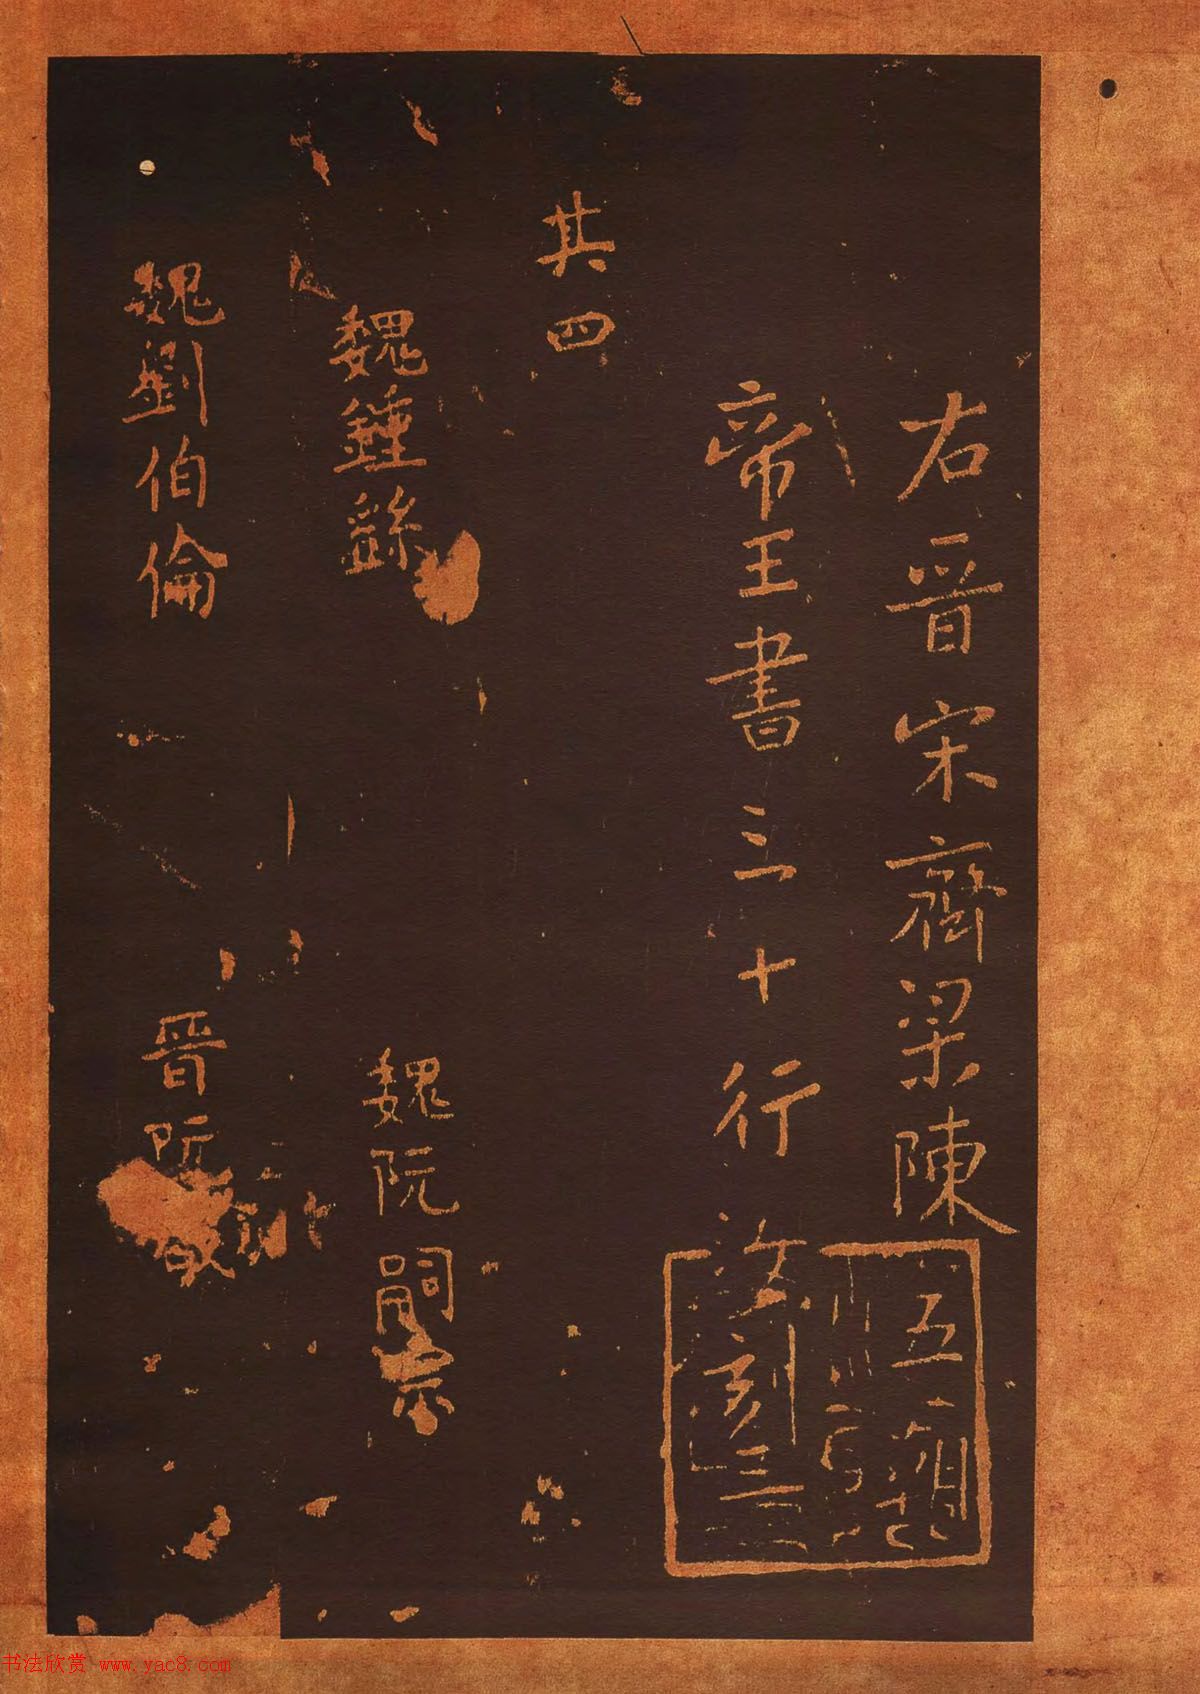 右晉宋齊梁陳
帝王書三十行 汝刻三
其四
魏鍾繇
魏阮嗣宗
魏劉伯倫
晉阮
书法欣赏 www.yac8.com